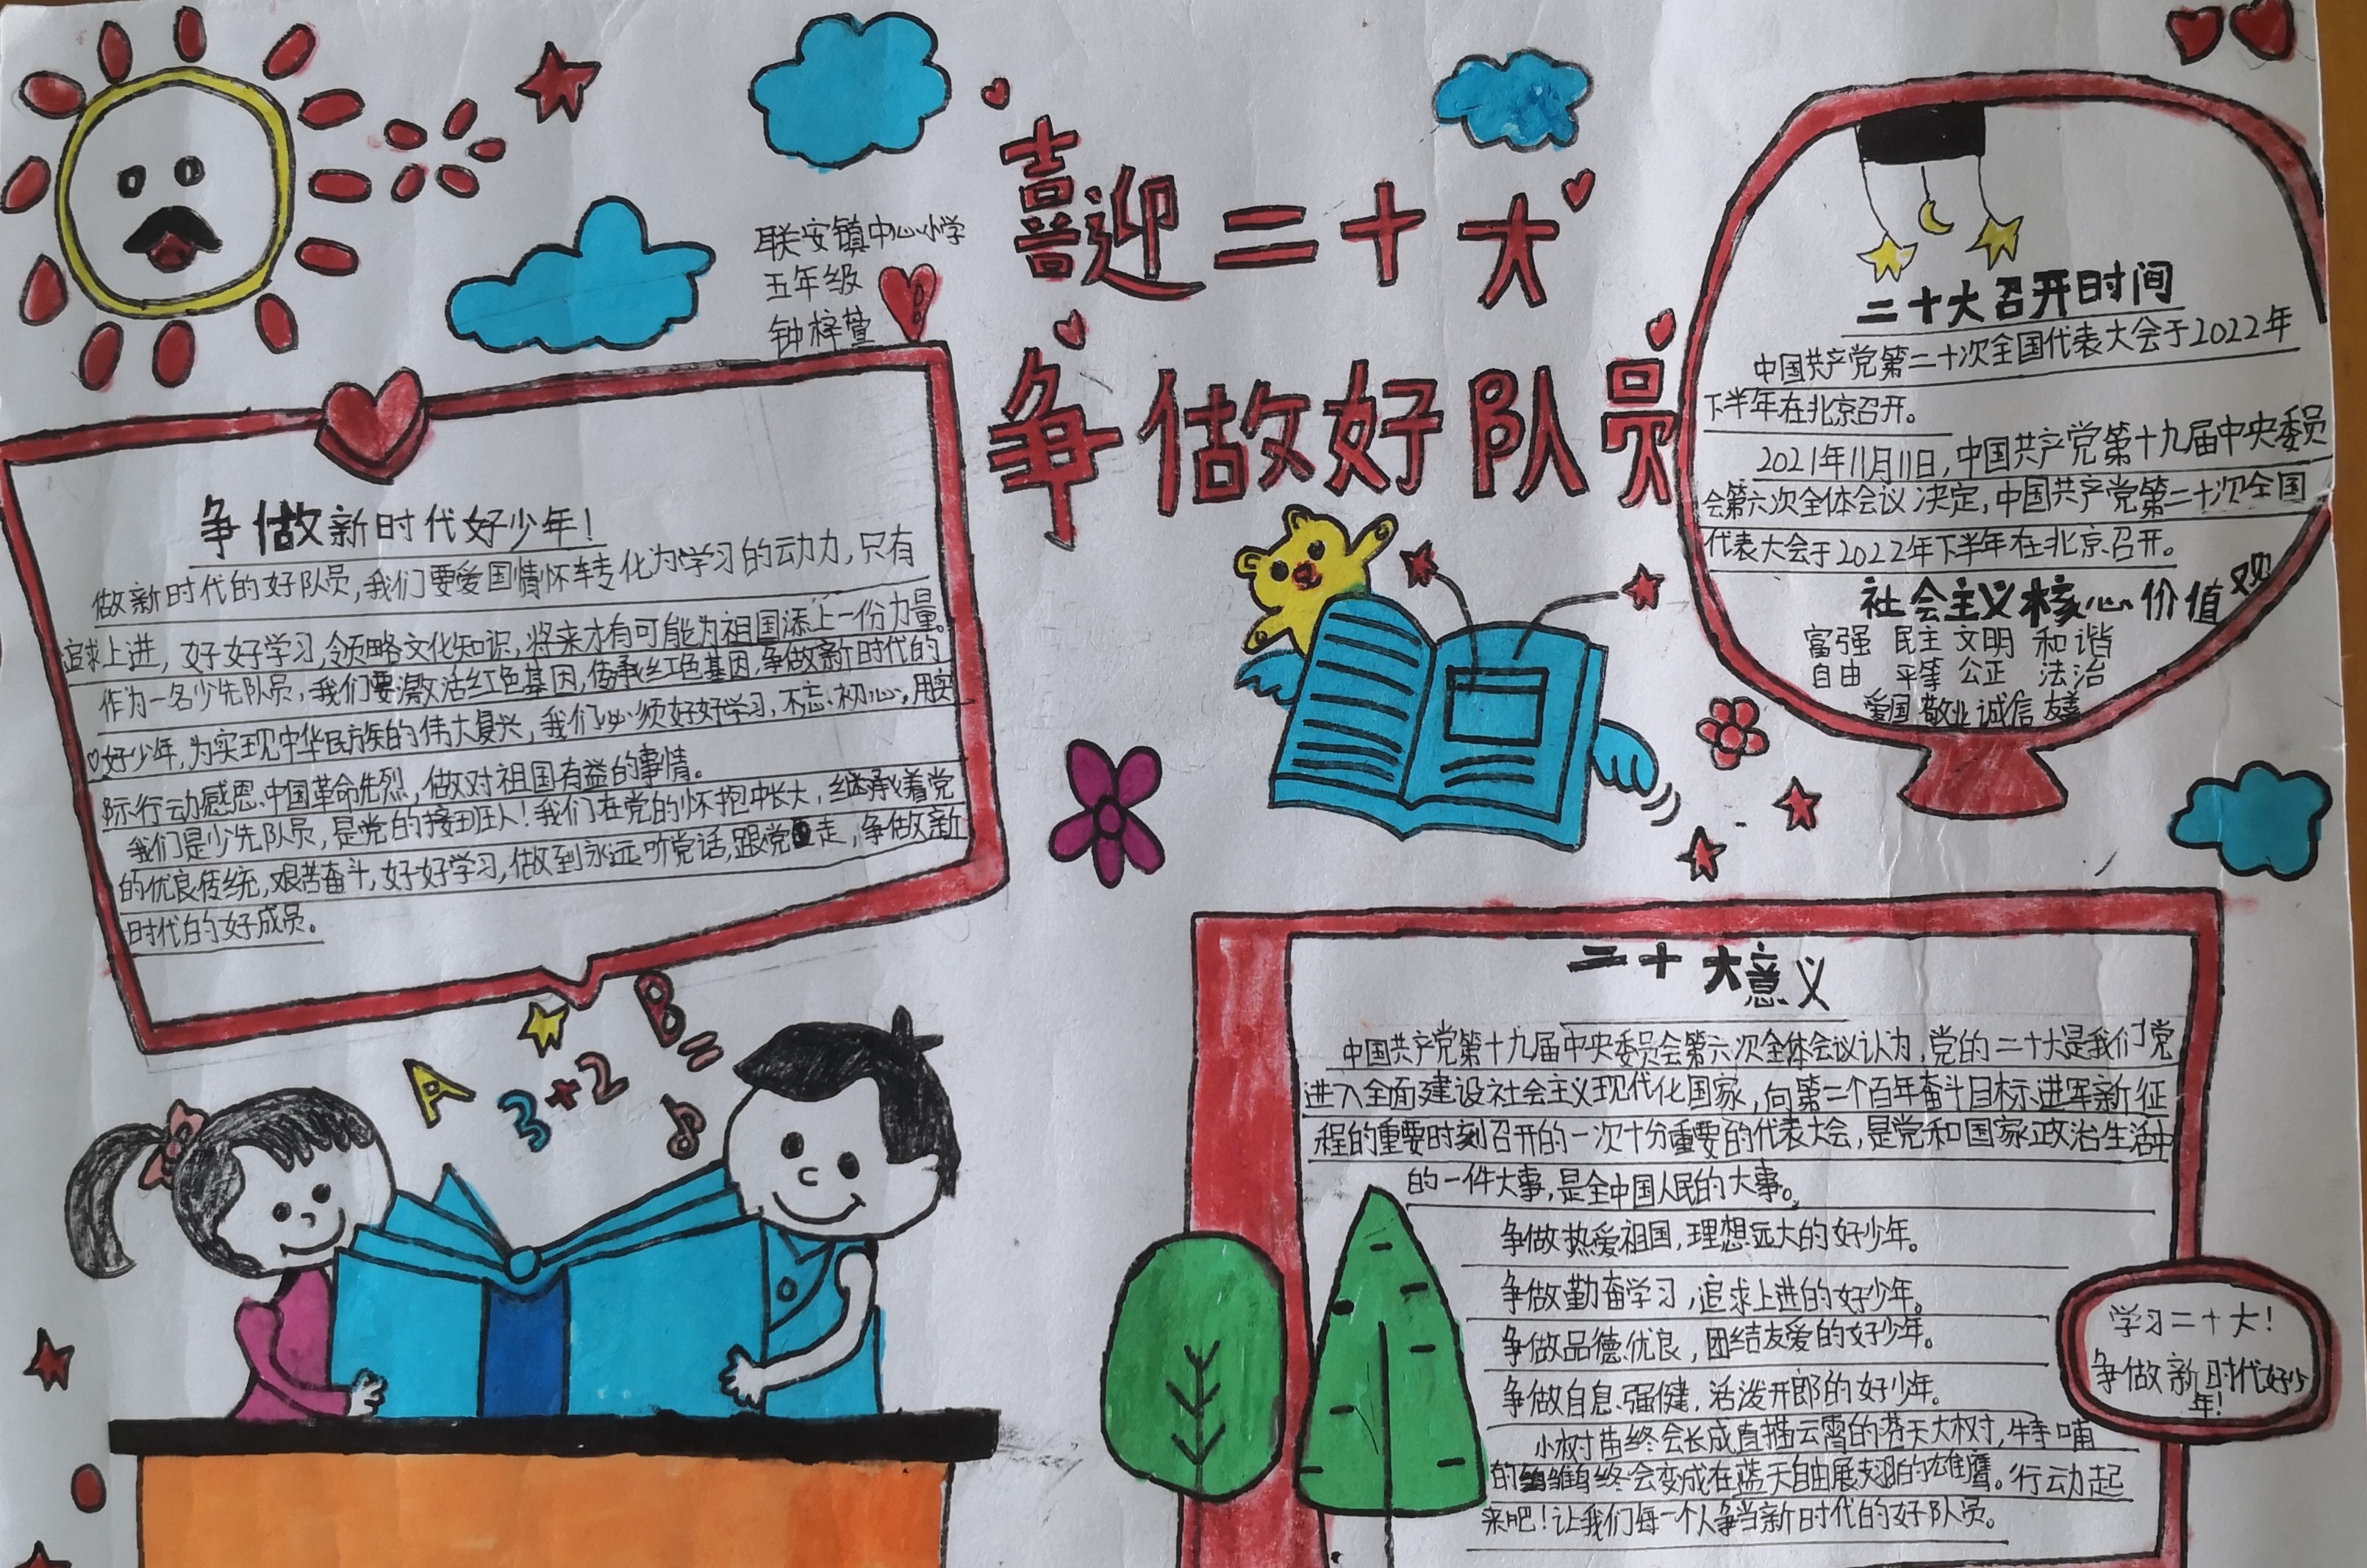 喜迎二十大
争做好队员
联安镇中心小学
五年级
钟梓萱
争做新时代好少年!
做新时代的好队员,我们要爱国情怀转化为学习的动力,只有
追求上进,好好学习,领略文化知识,将来才有可能为祖国添上一份力量。
作为一名少先队员,我们要激活红色基因,传承红色基因,争做新时代的
好少年,为实现中华民族的伟大复兴,我们必须好好学习,不忘初心,用实
际行动感恩中国革命先烈,做对祖国有益的事情。
我们是少先队员,是党的接班人!我们在党的怀抱中长大,继承着党
的优良传统,艰苦奋斗,好好学习,做到永远听党话,跟党走,争做新
时代的好成员。
二十大召开时间
中国共产党第二十次全国代表大会于2022年
下半年在北京召开。
2021年11月11日,中国共产党第十九届中央委员
会第六次全体会议决定,中国共产党第二十次全国
代表大会于2022年下半年在北京召开。
社会主义核心价值观
富强 民主 文明 和谐
自由 平等 公正 法治
爱国 敬业 诚信 友善
A
B
=
3+2
二十大意义
中国共产党第十九届中央委员会第六次全体会议认为,党的二十大是我们党
进入全面建设社会主义现代化国家,向第二个百年奋斗目标进军新征
程的重要时刻召开的一次十分重要的代表大会,是党和国家政治生活中
的一件大事,是全中国人民的大事。
争做热爱祖国,理想远大的好少年。
争做勤奋学习,追求上进的好少年。
争做品德优良,团结友爱的好少年。
争做自息强健,活泼开郎的好少年。
小树苗终会长成直插云霄的苍天大树,待哺
的雏鹰终会变成在蓝天自由展翅的雄鹰。行动起
来吧!让我们每一个人争当新时代的好队员。
学习二十大!
争做新时代好少
年!